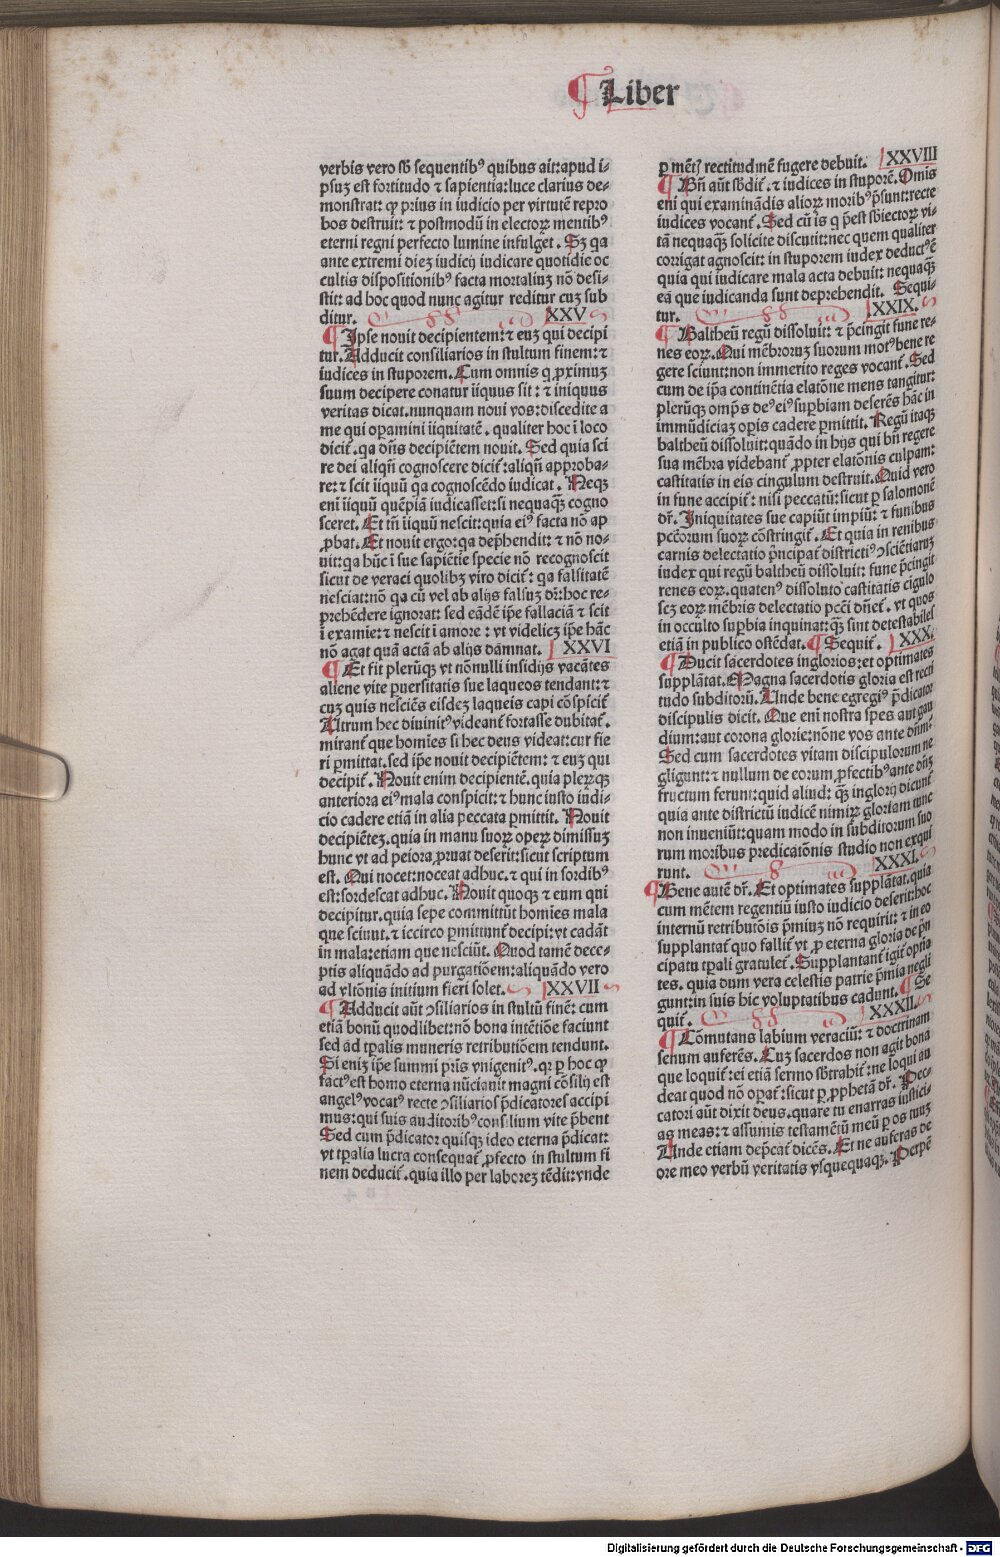 ¶ Liber
verbis vero sb̄ sequentibꝰ quibus ait: apud i-
psuꝫ est fortitudo ⁊ sapientia: luce clarius de-
monstrat: ꝙ prius in iudicio per virtutē repro
bos destruit: ⁊ postmodū in electoꝝ mentibꝰ
eterni regni perfecto lumine infulget. Sꝫ qa
ante extremi dieꝫ iudicij iudicare quotidie oc
cultis dispositionibꝰ facta mortaliuꝫ nō desi-
stit: ad hoc quod nunc agitur reditur cuꝫ sub
ditur. XXV
¶ Ipse nouit decipientem: ⁊ euꝫ qui decipi
tur. Adducit consiliarios in stultum finem: ⁊
iudices in stuporem. Cum omnis q̄ ꝓximuꝫ
suum decipere conatur iiquus sit: ⁊ iniquus
veritas dicat. nunquam noui vos: discedite a
me qui oꝑamini iiquitatē. qualiter hoc ī loco
dicit̄. qa dn̄s decipiētem nouit. Sed quia sci
re dei aliqn̄ cognoscere dicit̄: aliqn̄ approba-
re: ⁊ scit iiquū qa cognoscēdo iudicat. Neqꝫ
enī iiquū quēpiā iudicasset: si nequaqꝫ cogno
sceret. Et tn̄ iiquū nescit: quia eiꝰ facta nō ap
ꝓbat. Et nouit ergo: qa dep̄hendit: ⁊ nō no-
uit: qa hūc ī sue sapiētie specie nō recognoscit
sicut de veraci quolibꝫ viro dicit̄: qa falsitatē
nesciat: nō qa cū vel ab alijs falsuꝫ dr̄: hoc re-
prehēdere ignorat: sed eādē ip̄e fallaciā ⁊ scit
ī examie: ⁊ nescit ī amore: vt videlicꝫ ip̄e hāc
nō agat quā actā ab alijs dāmnat. XXVI
¶ Et fit plerūqꝫ vt nōnulli insidijs vacātes
aliene vite ꝑuersitatis sue laqueos tendant: ⁊
cuꝫ quis nesciēs eisdeꝫ laqueis capi cōspicit̄
Utrum hec diuinitꝰ videant̄ fortasse dubitat̄.
mirant̄ que homīes si hec deus videat: cur fie
ri ꝑmittat. sed ip̄e nouit decipiētem: ⁊ euꝫ qui
decipit̄. Nouit enim decipientē. quia pleꝝqꝫ
anteriora eiꝰ mala conspicit: ⁊ hunc iusto iudi-
cio cadere etiā in alia peccata ꝑmittit. Nouit
decipiēteꝫ. quia in manu suoꝝ opeꝝ dimissuꝫ
hunc vt ad peiora ꝓruat deserit: sicut scriptum
est. Qui nocet: noceat adhuc. ⁊ qui in sordibꝰ
est: sordescat adhuc. Nouit quoqꝫ ⁊ eum qui
decipitur. quia sepe committūt homīes mala
que sciunt. ⁊ iccirco ꝑmittunt̄ decipi: vt cadāt
in mala: etiam que nesciūt. Quod tamē dece-
ptis aliquādo ad purgatiōem: aliquādo vero
ad vltōnis initium fieri solet. XXVII
¶ Adducit aūt ↄsiliarios in stultū finē: cum
etiā bonū quodlibet: nō bona intētiōe faciunt
sed ad tꝑalis muneris retributiōem tendunt.
Si eniꝫ ip̄e summi pr̄is vnigenitꝰ. qꝛ ꝑ hoc ꝙ
factꝰ est homo eterna nūciauit magni cōsilij est
angelꝰ vocatꝰ recte ↄsiliarios p̄dicatores accipi
mus: qui suis auditoribꝰ consilium vite p̄bent
Sed cum p̄dicator quisqꝫ ideo eterna p̄dicat:
vt tꝑalia lucra consequat̄ ꝓfecto in stultum fi
nem deducit̄. quia illo per laboreꝫ tēdit: vnde
ꝑ mēt̄ rectitudinē fugere debuit. XXVIII
¶ Bn̄ aūt sb̄dit̄. ⁊ iudices in stuporē. Omīs
eni qui examinādis alioꝝ moribꝰ p̄sunt: recte
iudices vocant̄. Sed cū is q̄ p̄est sb̄iectoꝝ vi-
tā nequaqꝫ solicite discutit: nec quem qualiter
corrigat agnoscit: in stuporem iudex deductꝰ ē
quia qui iudicare mala acta debuit: nequaqꝫ
eā que iudicanda sunt deprehendit. Sequi-
tur. XXIX.
¶ Baltheū regū dissoluit: ⁊ p̄cingit fune re-
nes eoꝝ. Qui mēbroruꝫ suorum motꝰ bene re
gere sciunt: non immerito reges vocant̄. Sed
cum de ip̄a continētia elatōne mens tangitur:
plerūqꝫ omp̄s deꝰ eiꝰ suꝑbiam deserēs hāc in
immūdiciaꝫ oꝑis cadere ꝑmittit. Regū itaqꝫ
baltheū dissoluit: quādo in hijs qui bn̄ regere
sua mēbra videbant̄ ꝓpter elatōnis culpam:
castitatis in eis cingulum destruit. Quid vero
in fune accipit̄: nisi peccatū: sicut ꝑ salomonē
dr̄. Iniquitates sue capiūt impiū: ⁊ funibus
pcc̄orum suoꝝ cōstringit̄. Et quia in renibus
carnis delectatio p̄ncipat̄ districtiꝰ ↄsciētiaruꝫ
iudex qui regū baltheū dissoluit: fune p̄cingit
renes eoꝝ. quatenꝰ dissoluto castitatis cīgulo
scꝫ eoꝝ mēbris delectatio pcc̄i dn̄et̄. vt quos
in occulto suꝑbia inquinat: qꝫ sint detestabiles
etiā in publico ostēdat. ¶ Sequit̄. XXX.
¶ Ducit sacerdotes inglorios: et optimates
supplātat. Magna sacerdotis gloria est recti
tudo subditorū. Unde bene egregiꝰ p̄dicator
discipulis dicit. Que enī nostra spes aut gau
dium: aut corona glorie: nōne vos ante dn̄m:
Sed cum sacerdotes vitam discipulorum ne
gligunt: ⁊ nullum de eorum ꝓfectibꝰ ante dn̄ꝫ
fructum ferunt: quid aliud: qꝫ inglorij dicunt̄
quia ante districtū iudicē nimiꝝ gloriam tunc
non inueniūt: quam modo in subditorum suo
rum moribus predicatōnis studio non exqui
runt. XXXI.
¶ Bene autē dr̄. Et optimates supplātat. quia
cum mētem regentiū iusto iudicio deserit: hoc
internū retributōis p̄miuꝫ nō requirit: ⁊ in eo
supplantat̄ quo fallit̄ vt ꝓ eterna gloria de p̄n
cipatu tꝑali gratulet̄. Supplantant̄ igit̄ optia
tes. quia dum vera celestis patrie p̄mia negli
gunt: in suis hic voluptatibus cadunt. ¶ Se
quit̄. XXXII.
¶ Cōmutans labium veraciū: ⁊ doctrinam
senum auferēs. Cuꝫ sacerdos non agit bona
que loquit̄: ei etiā sermo sb̄trahit̄: ne loqui au
deat quod nō oꝑat̄: sicut ꝑ ꝓphetā dr̄. Pec-
catori aūt dixit deus. quare tu enarras iustici-
as meas: ⁊ assumis testamētū meū ꝑ os tuuꝫ
Unde etiam dep̄cat̄ dicēs. Et ne auferas de
ore meo verbū veritatis vsquequaqꝫ. Perpē
Digitalisierung gefördert durch die Deutsche Forschungsgemeinschaft - DFG